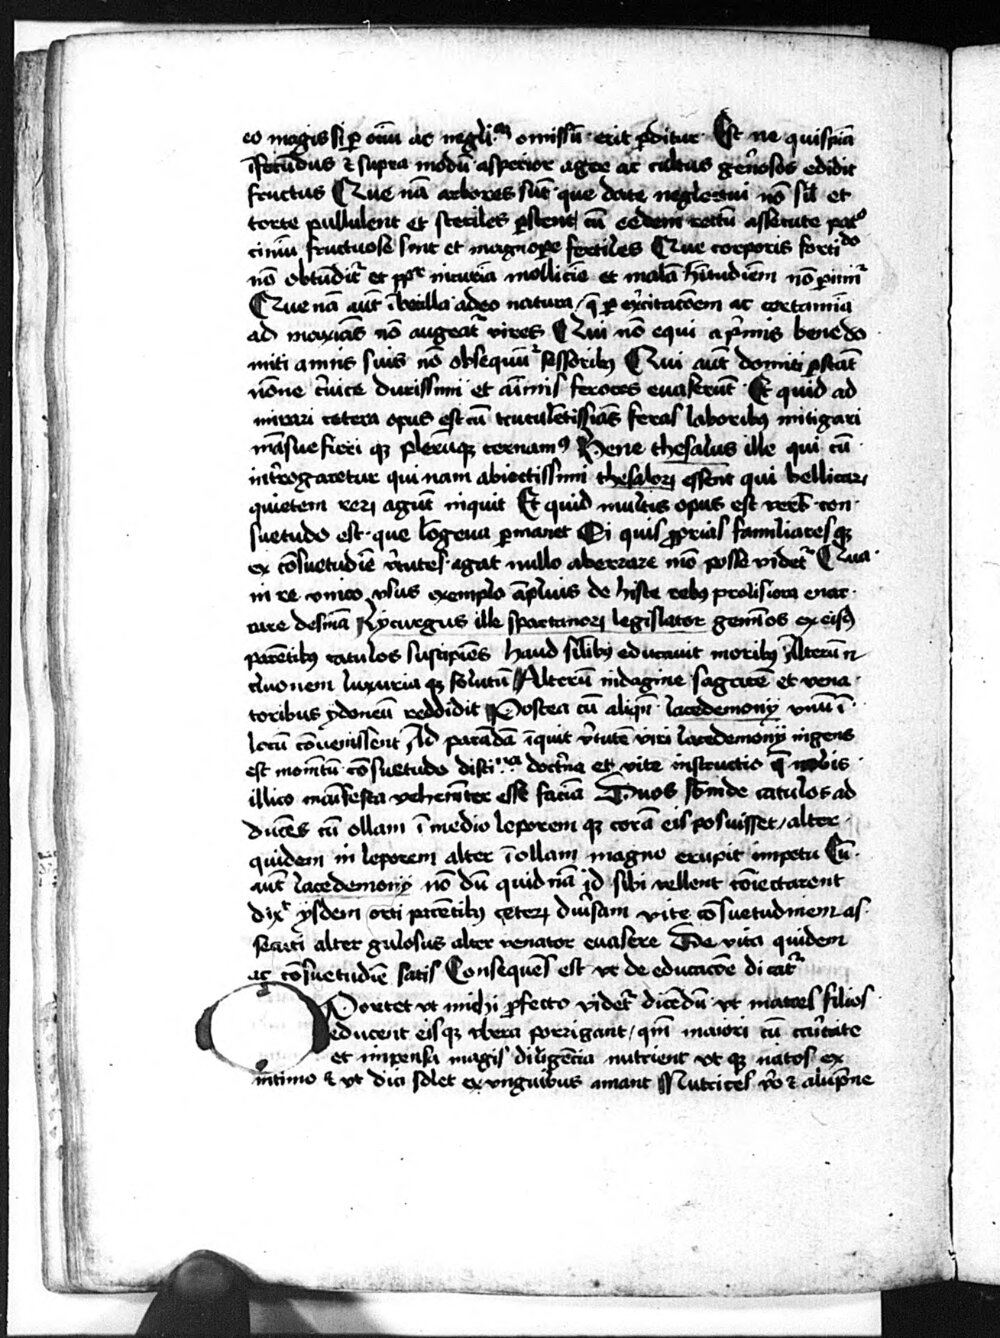 eo magis si ꝑ ociū ac negli.am omissū erit ꝑditur Est ne quispiā
īfecūdus ⁊ supra modū asperior ager ac cultus gen̄osos edidit
fructus Que nā arbores sūt que dōte neglerōi nō sil et
torte pullulent et steriles p̄stent cū eedem rectū assecute pat
ciniū fructuose sint et magnopē fertiles Que corporis fortido
nō obtūdit̄ et ppr̄ incuriā mollicie et malā hītudiem nō ꝑimit̄
Que nā aūt ībecilla adeo natura / q̄ ꝑ exc̄itacōem ac certamīa
ad maxiās nō augeat̄ vires Qui nō equi a p̄mis bene do
miti annis suis nō obsequūt̄ sessoribꝰ Qui aūt domiti p̄stāt
nōne c̄uice durissimi et aīmis feroces evaserūt Et quid ad
mirari cetera opus est cū truculētissiās feras laboribꝰ mitigari
māsuefieri qꝫ plerūqꝫ cernamꝰ Bene thesalus ille qui cū
int̄rogaretur qui nam abiectissimi thesaloꝝ essent qui bellicaꝝ
quietem reꝝ agūt inquit Et quid multis opus est verb̄ con
suetudo est que lōgeva ꝑmanet Si quis ꝓprias familiares qꝫ
ex cōsuetudīe v̄tutes agat nullo aberrare mō posse videt̄ Qua
in re vnico vsus exemplo āpliuis de hisce rebꝰ prolisiora enar
rare desinā Lycurgus ille spartanoꝝ legislator gemīos ex eisdē
parētibꝰ catulos suscipiēs haud silībꝰ educavit moribꝰ Alterū n
gluonem luxuria qꝫ solutū Alterū indagine sagacē et vena
toribus ydoneū reddidit Postea cū aliqn̄ lacedemonij vnū ī
locū cōvenissent Ad parādā īquit v̄tutē viri lacedemonij ingens
est momētū cōsuetudo disti.na doct̄na et vite instructio q̄ nobis
illico manifesta vehemēter esse faciā Duos subinde catulos ad
ducēs cū ollam ī medio leporem qꝫ corā eis posuisset / alter
quidem in leporem alter ī ollam magno erupit impetu Cū
aūt lacedemonij nō dū quid nā id sibi vellent cōiectarent
dixt̄ ysdem orti parētibꝰ ceteꝝ div̄sam vite cōsuetudinem as
secuti alter gulosus alter venator evasere De vita quidem
ac cōsuetudīe satis Consequēs est vt de educacōe dicat̄
Oportet vt michi ꝓfecto videt̄ dicēdū vt matres filios
educent eisqꝫ vbera porrigant / qm̄ maiori cū caritate
et impensa magis diligēcia nutrient vt qꝫ natos ex
intimo ⁊ vt dici solet ex vnguibus amant Nutrices vō ⁊ alūpne